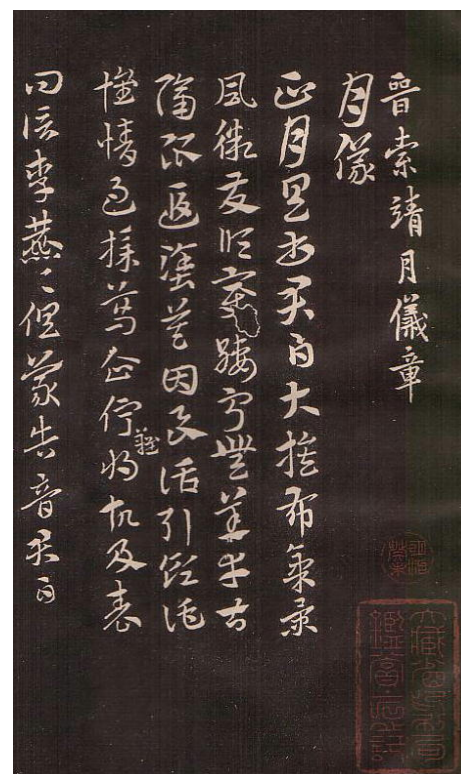 晉索靖月儀章
月儀
正月具書君白大蔟布氣景
風微發順變綏寧無恙幸甚
隔限遐塗莫因良話引領托
懷情過採葛企佇難將故及表
問信李燕〻俱蒙告音君白